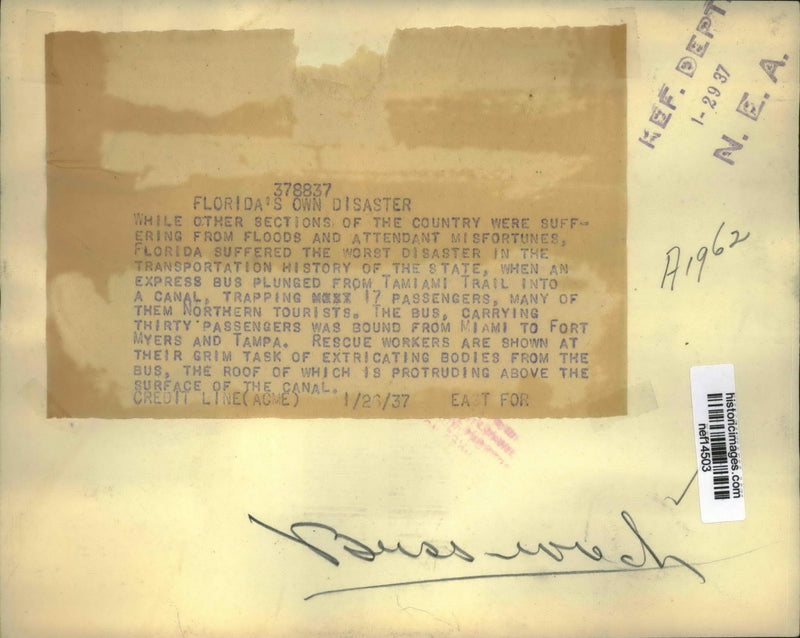 REF. DEPT.
1-29 37
N. E. A.
A1962
378837
FLORIDA'S OWN DISASTER
WHILE OTHER SECTIONS OF THE COUNTRY WERE SUFF-
ERING FROM FLOODS AND ATTENDANT MISFORTUNES,
FLORIDA SUFFERED THE WORST DISASTER IN THE
TRANSPORTATION HISTORY OF THE STATE, WHEN AN
EXPRESS BUS PLUNGED FROM TAMIAMI TRAIL INTO
A CANAL, TRAPPING 17 PASSENGERS, MANY OF
THEM NORTHERN TOURISTS. THE BUS, CARRYING
THIRTY PASSENGERS WAS BOUND FROM MIAMI TO FORT
MYERS AND TAMPA. RESCUE WORKERS ARE SHOWN AT
THEIR GRIM TASK OF EXTRICATING BODIES FROM THE
BUS, THE ROOF OF WHICH IS PROTRUDING ABOVE THE
SURFACE OF THE CANAL.
CREDIT LINE(ACME) 1/26/37 EAST FOR
historicimages.com
nef14503
Buss-wreck